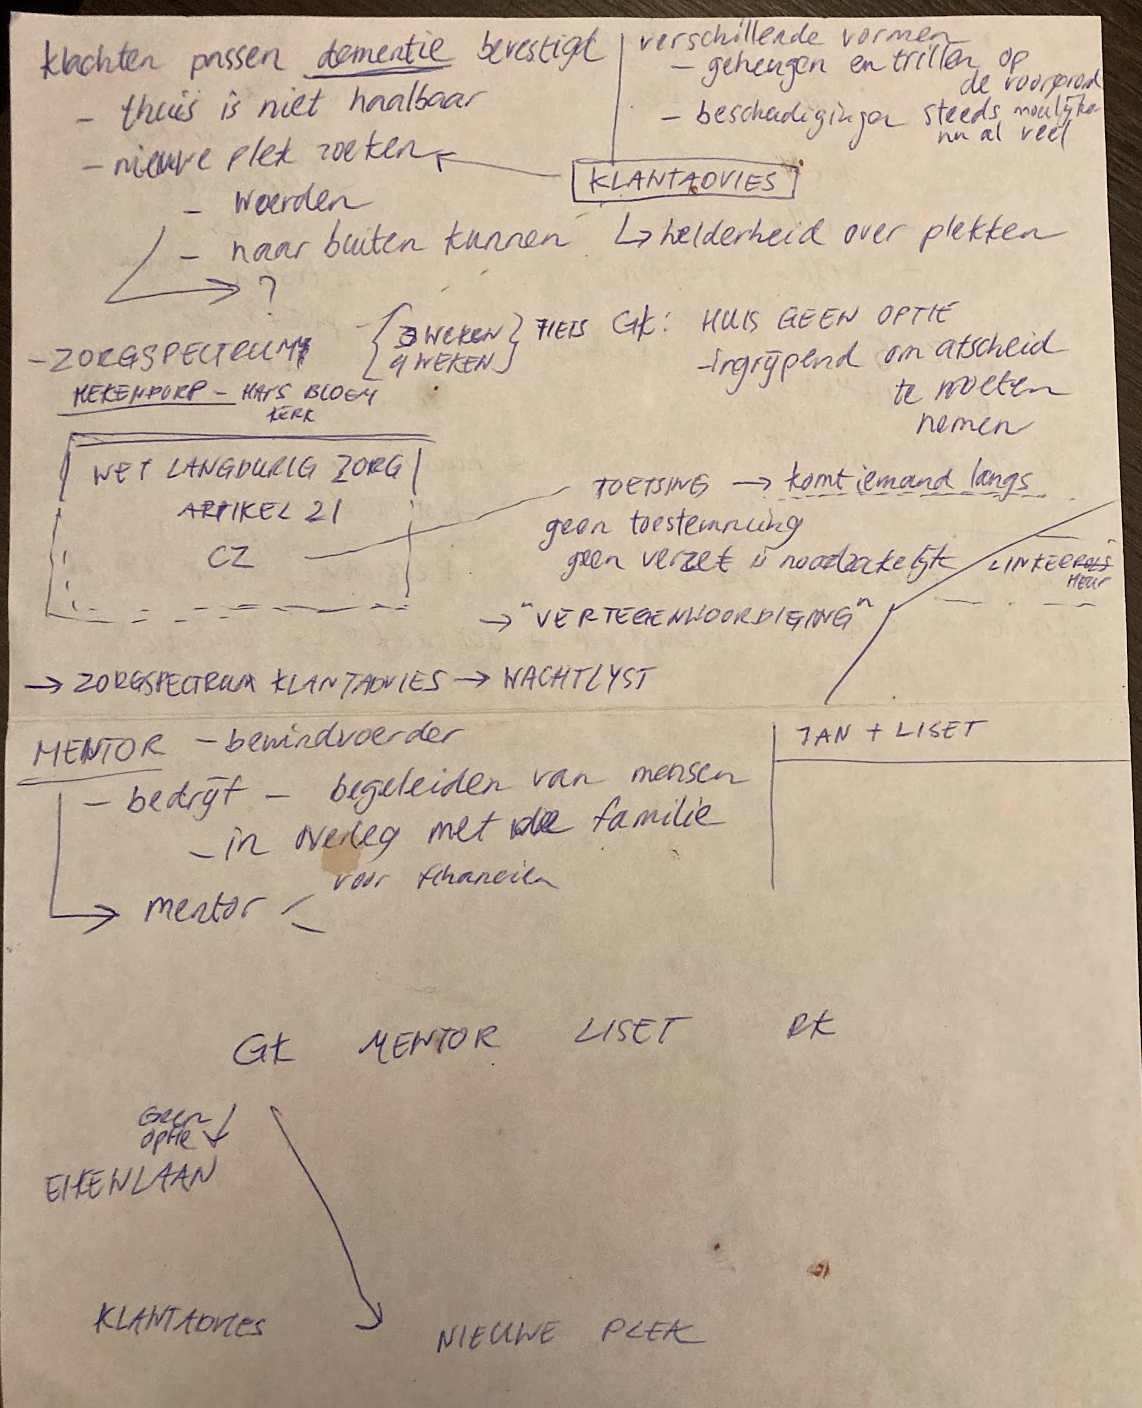 klachten passen dementie bevestigt
- thuis is niet haalbaar
- nieuwe plek zoeken
- woerden
- naar buiten kunnen
?
verschillende vormen
- geheugen en trillen op
de voorgrond
- beschadigingen steeds moeilijker
nu al veel
KLANTADVIES
↳ helderheid over plekken
- ZORGSPECTRUM
{3 WEKEN
9 WEKEN} FIETS
HEKENDORP - HANS BLOEM
KERK
GK: HUIS GEEN OPTIE
- ingrijpend om afscheid
te moeten
nemen
WET LANGDURIG ZORG
ARTIKEL 21
CZ
TOETSING → komt iemand langs
geen toestemming
geen verzet is noodzakelijk
→ "VERTEGENWOORDIGING"
LINKER
HEUP
→ ZORGSPECTRUM KLANTADVIES → WACHTLYST
MENTOR - bewindvoerder
- bedrijf - begeleiden van mensen
- in overleg met de familie
voor financien
→ mentor
JAN + LISET
GK MENTOR LISET RK
Geen
optie
EIKENLAAN
KLANTADVIES
NIEUWE PLEK